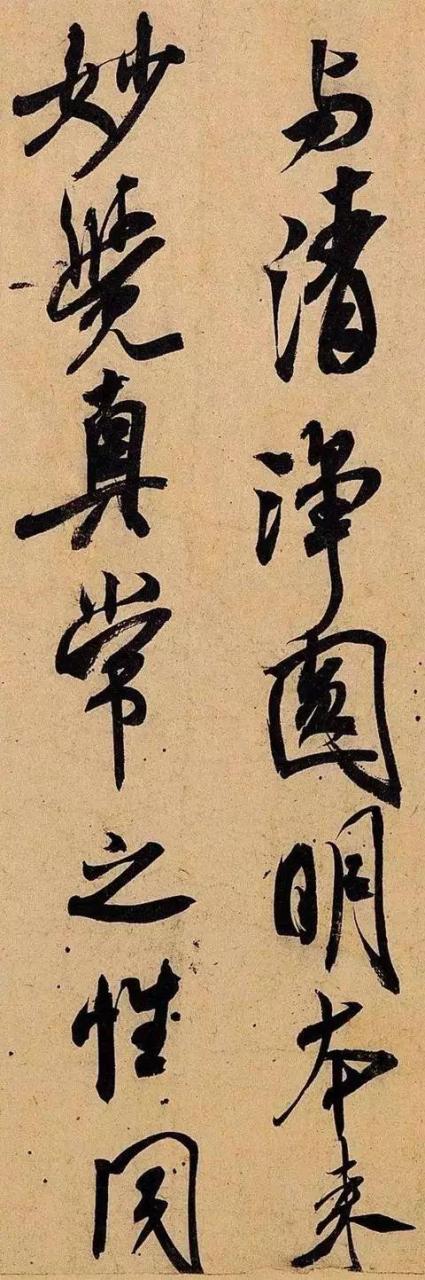 与清淨圓明本来
妙覺真常之性同